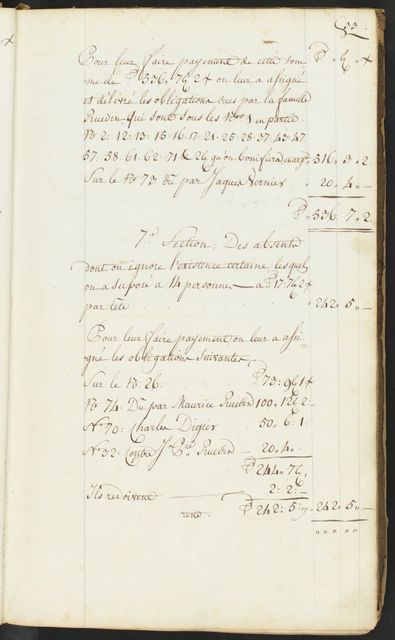 33.
Pour leur faire payement de cette som-
me de P 536„ 7ß 2+ on leur a assigné
et délivré les obligations dues par la famille
Ruedin qui sont sous les Nos 1 en partie
No 2: 12: 13: 15: 16: 17: 21: 25: 28: 37: 43: 47.
57: 58: 61: 62: 71: & 26 qu'on bonifiera en arg. 516„ 3„ 2.
Sur le No 73 dû par Jaques Vernier „ 20„ 4„ —
P 536. 7„ 2.
7e Section, Des absents
dont on ignore l'existence certaine, lesquels
on a suposé a 14 personnes — a P 17: 7ß 2+
par tête „ 242„ 5„ —
Pour leur faire payement on leur a assi-
gné les obligations suivantes,
Sur le No 26: P 73: 0ß 1+
No 74: Du par Maurice Ruedin 100„ 1ß 2:
No 70: Charles Digier 50„ 6: 1:
No 32: Contre J. Bte Ruedin — 20„ 4„ —
P 244„ 7ß,
Ils redoivent — 2: 2: —
P 242: 5: „ 242„ 5„ —
„ „ „ „